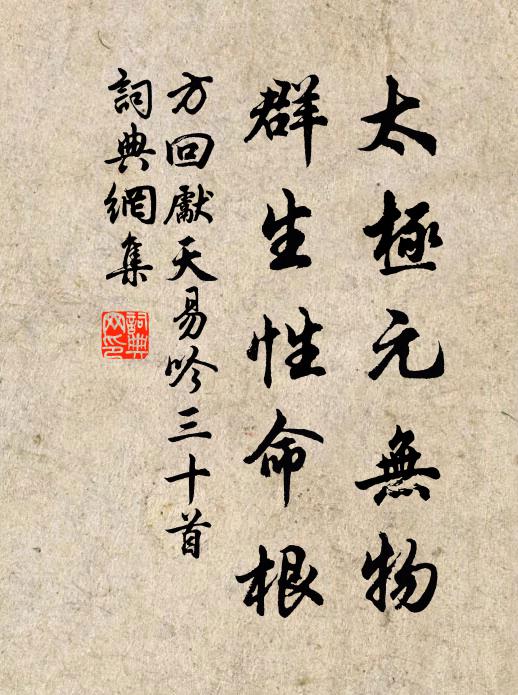 太極元無物
群生性命根
方回獻天易吟三十首
詞典網集
詞典網印